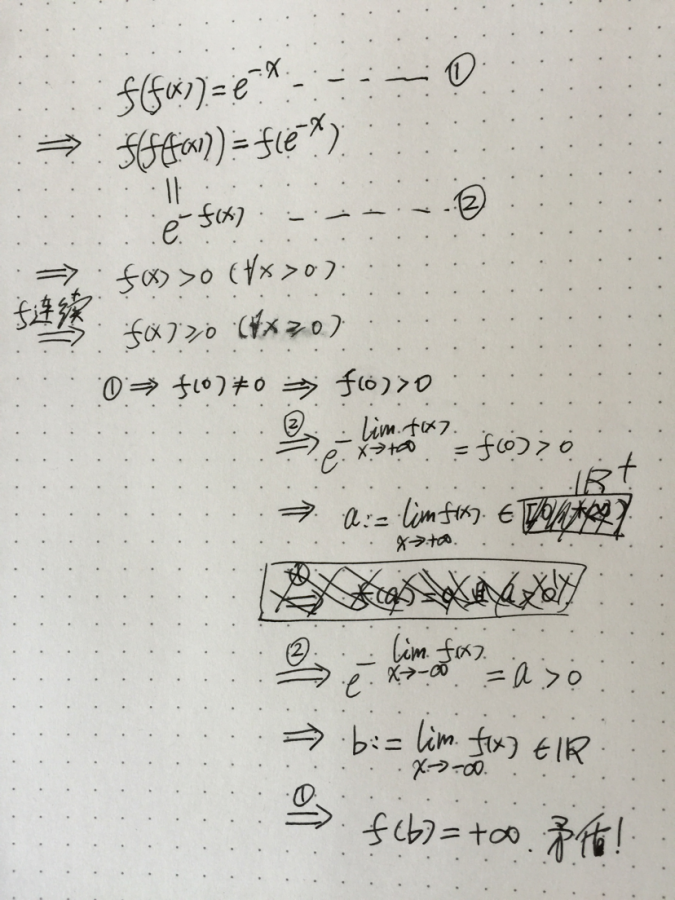 f(f(x)) = e^{-x} - - - - - ①
⇒ f(f(f(x))) = f(e^{-x})
||
e^{-f(x)} - - - - - - ②
⇒ f(x) > 0 (∀x > 0)
f连续 ⇒ f(x) ≥ 0 (∀x ≥ 0)
① ⇒ f(0) ≠ 0 ⇒ f(0) > 0
② ⇒ e^{-lim_{x→+∞} f(x)} = f(0) > 0
⇒ a := lim_{x→+∞} f(x) ∈ ℝ⁺
② ⇒ e^{-lim_{x→-∞} f(x)} = a > 0
⇒ b := lim_{x→-∞} f(x) ∈ ℝ
① ⇒ f(b) = +∞. 矛盾!